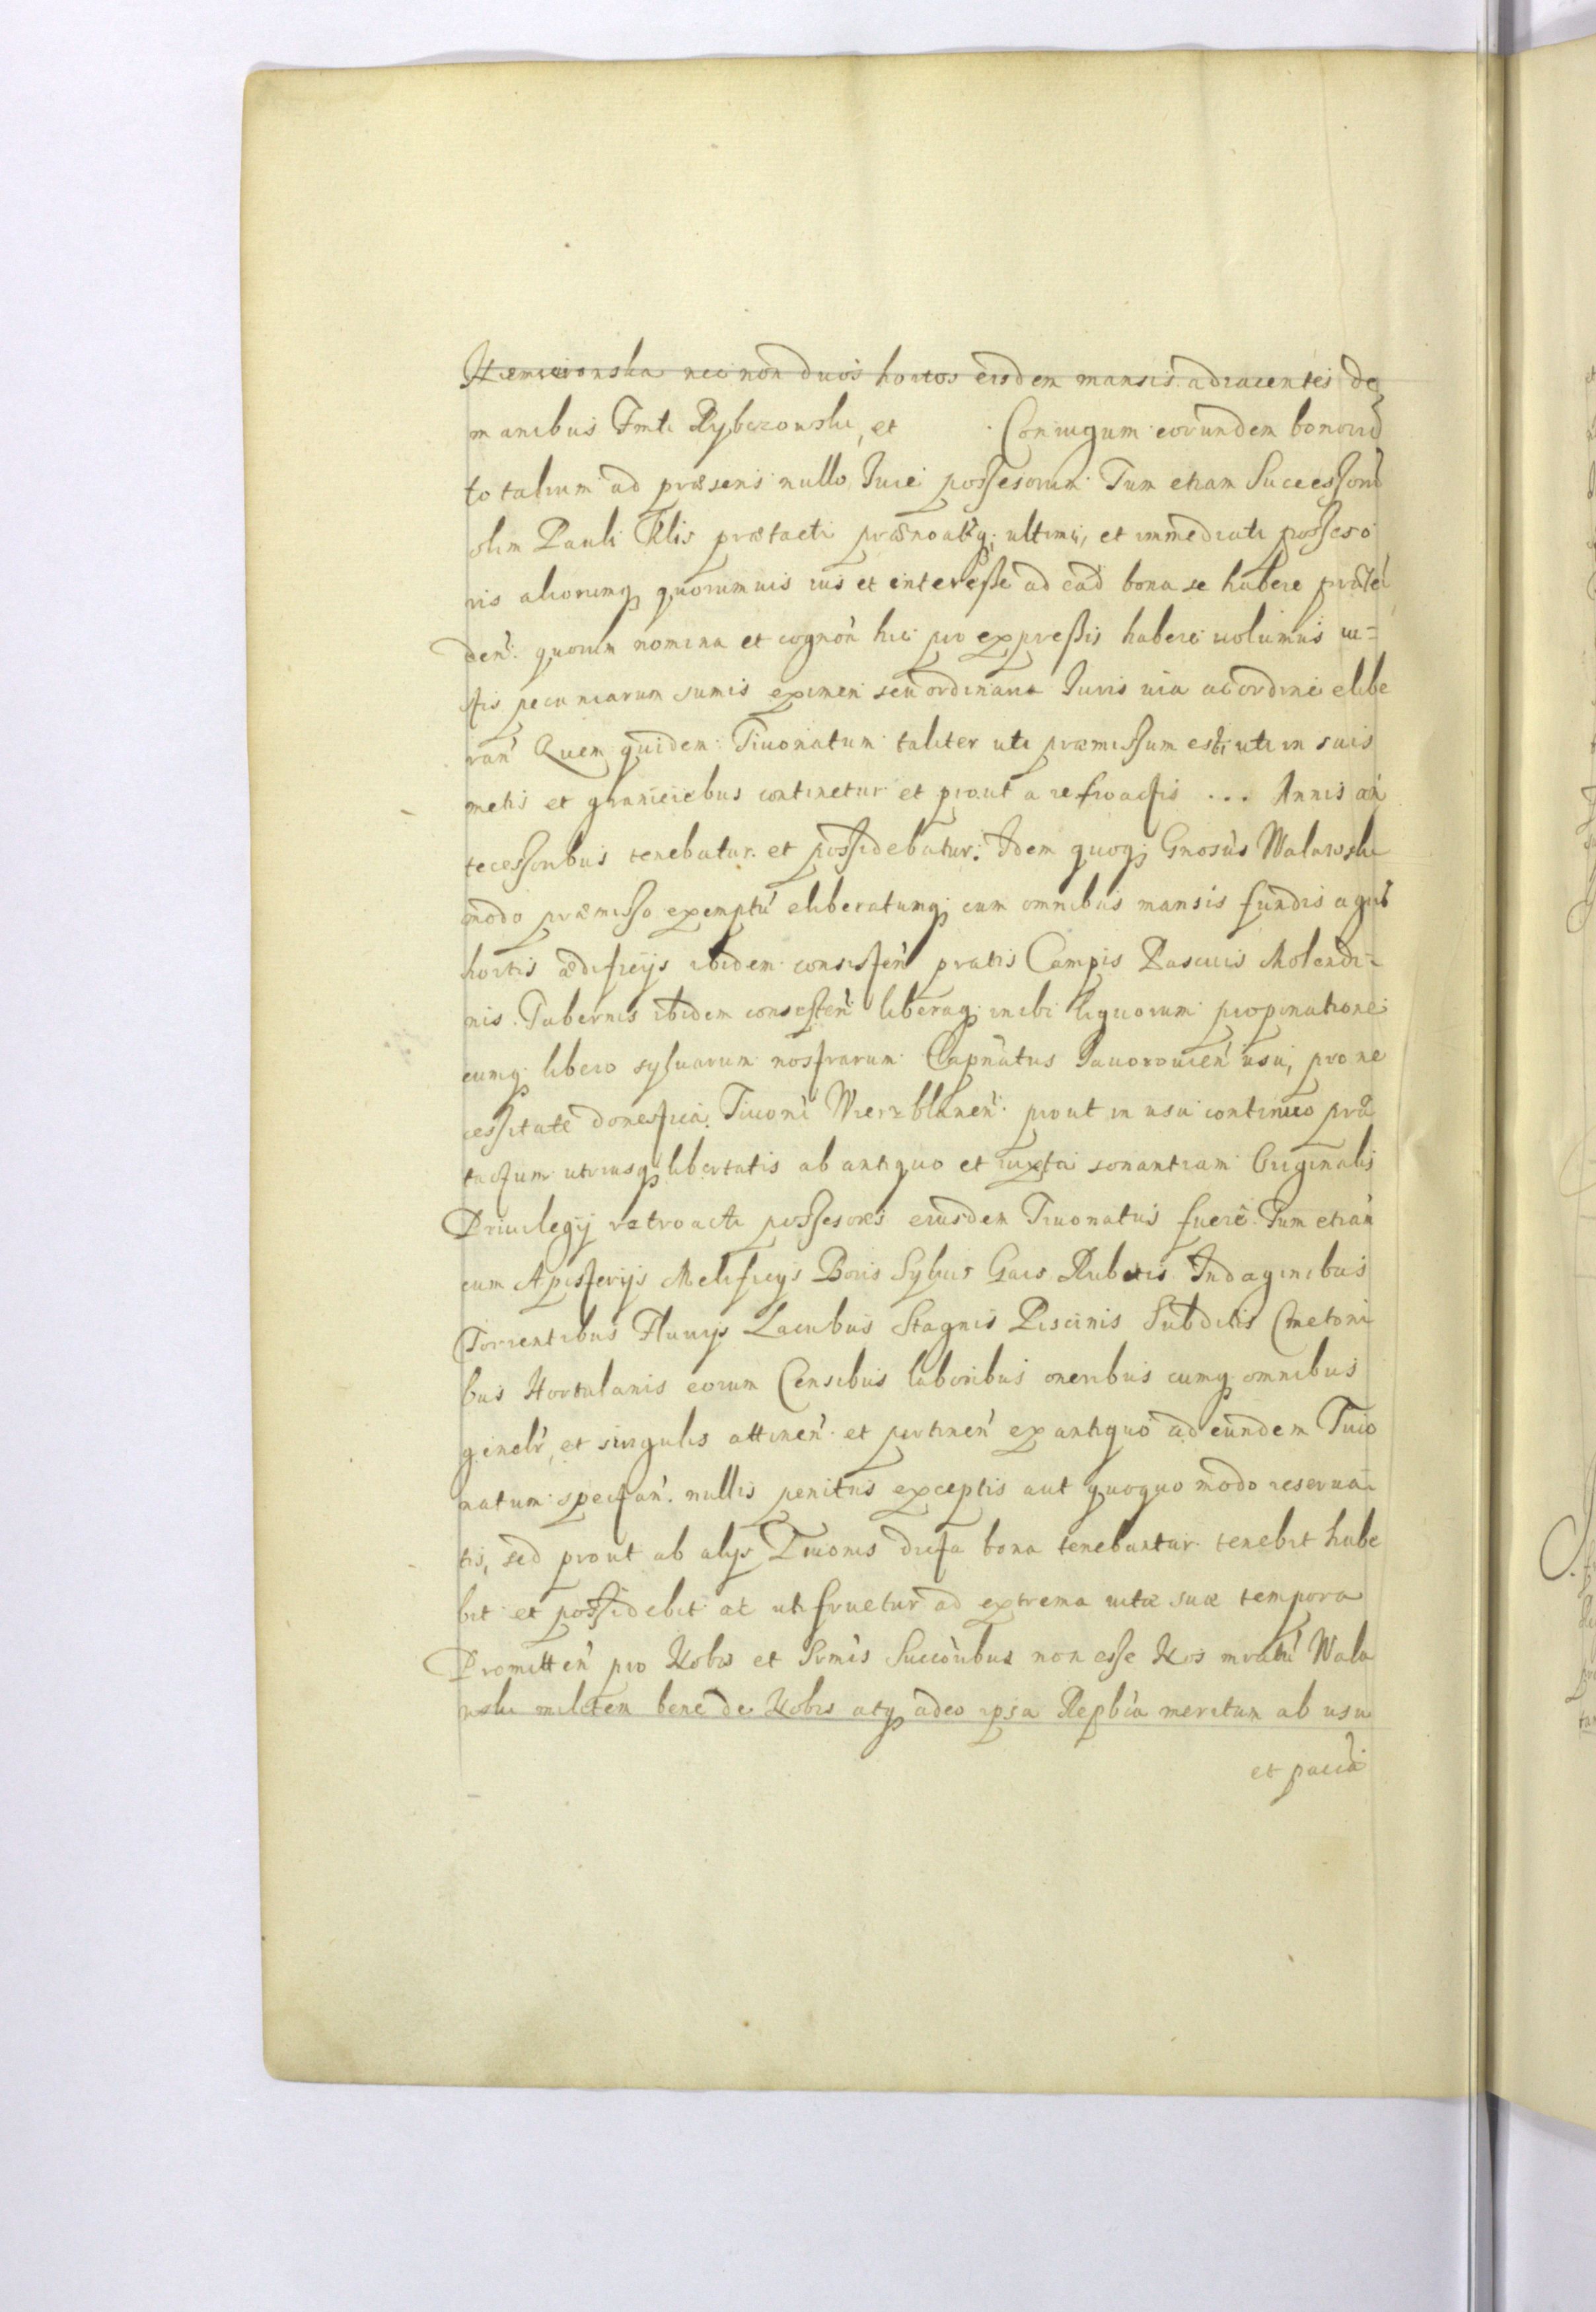 Niemirowska nec non duos hortos eisdem mansis adiacentes de
manibus Fmti Rybczowski, et Coniugum eorundem bonorũ
totalium ad præsens nullo Jure possesorum Tum etiam Successorũ
olim Pauli Klis prætacti ultimi, et immediati posseso
ris aliorumq quorumuis ius et interesse ad eãd bona se habere præten
den: quorum nomina et cognõn hic pro expressis habere uolumus iu=
stis pecuniarum sumis eximen seu ordinaria Juris uia ac ordine elibe
ran̉ Quem quidem Tiuonatum taliter uti præmissum est, uti in suis
metis et graniciebus continetur et prout a retroactis ... Annis an̉
tecessoribus tenebatur et possidebatur. Idem quoq; Gnosus Walawski
modo præmisso exemptũ eliberatumq; cum omnibus mansis fundis agris
hortis ædificijs ibidem consisten̉ pratis Campis Pascuis Molendi=
nis Tabernis ibidem consisten̉ liberaq; inibi liquorum propinatione
cumq; libero syluarum nostrarum Capn̉atus Jauorouien̉ usu, pro ne
cessitate domestica Tiuoni Wierzblanen̉ prout in usu continuo præ
tactum utriusq libertatis ab antiquo et iuxta sonantiam Originalis
Priuilegij retroacti possesores eiusdem Tiuonatus fuere. Tum etiam
cum Apisterijs Melificijs Boris Syluis Gais Rubetis Indaginibus
Torrentibus Fluuijs Lacubus Stagnis Piscinis Subditis Cmetoni
bus Hortulanis eorum Censibus laboribus oneribus cumq omnibus
gn̉elr, et singulis attinen̉ et pertinen̉ ex antiquo ad eundem Tiuo
natum spectan̉. nullis penitus exceptis aut quoquo modo reserua=
tis, sed prout ab alijs Tiuonis dicta bona tenebantur tenebit habe
bit et possidebit ac uti fruetur ad extrema uitæ suæ tempora
Promitten̉ pro Nobis et Srmis Succoribus non esse Nos mratũ Wala
wski militem bene de Nobis atq adeo ipsa Repbca meritum ab usu
et paci̇̉a